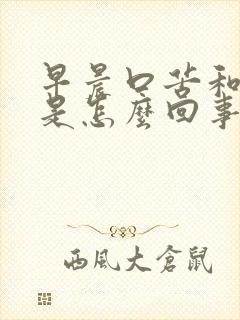 早晨口苦和
是怎麼回事
西風大倉鼠